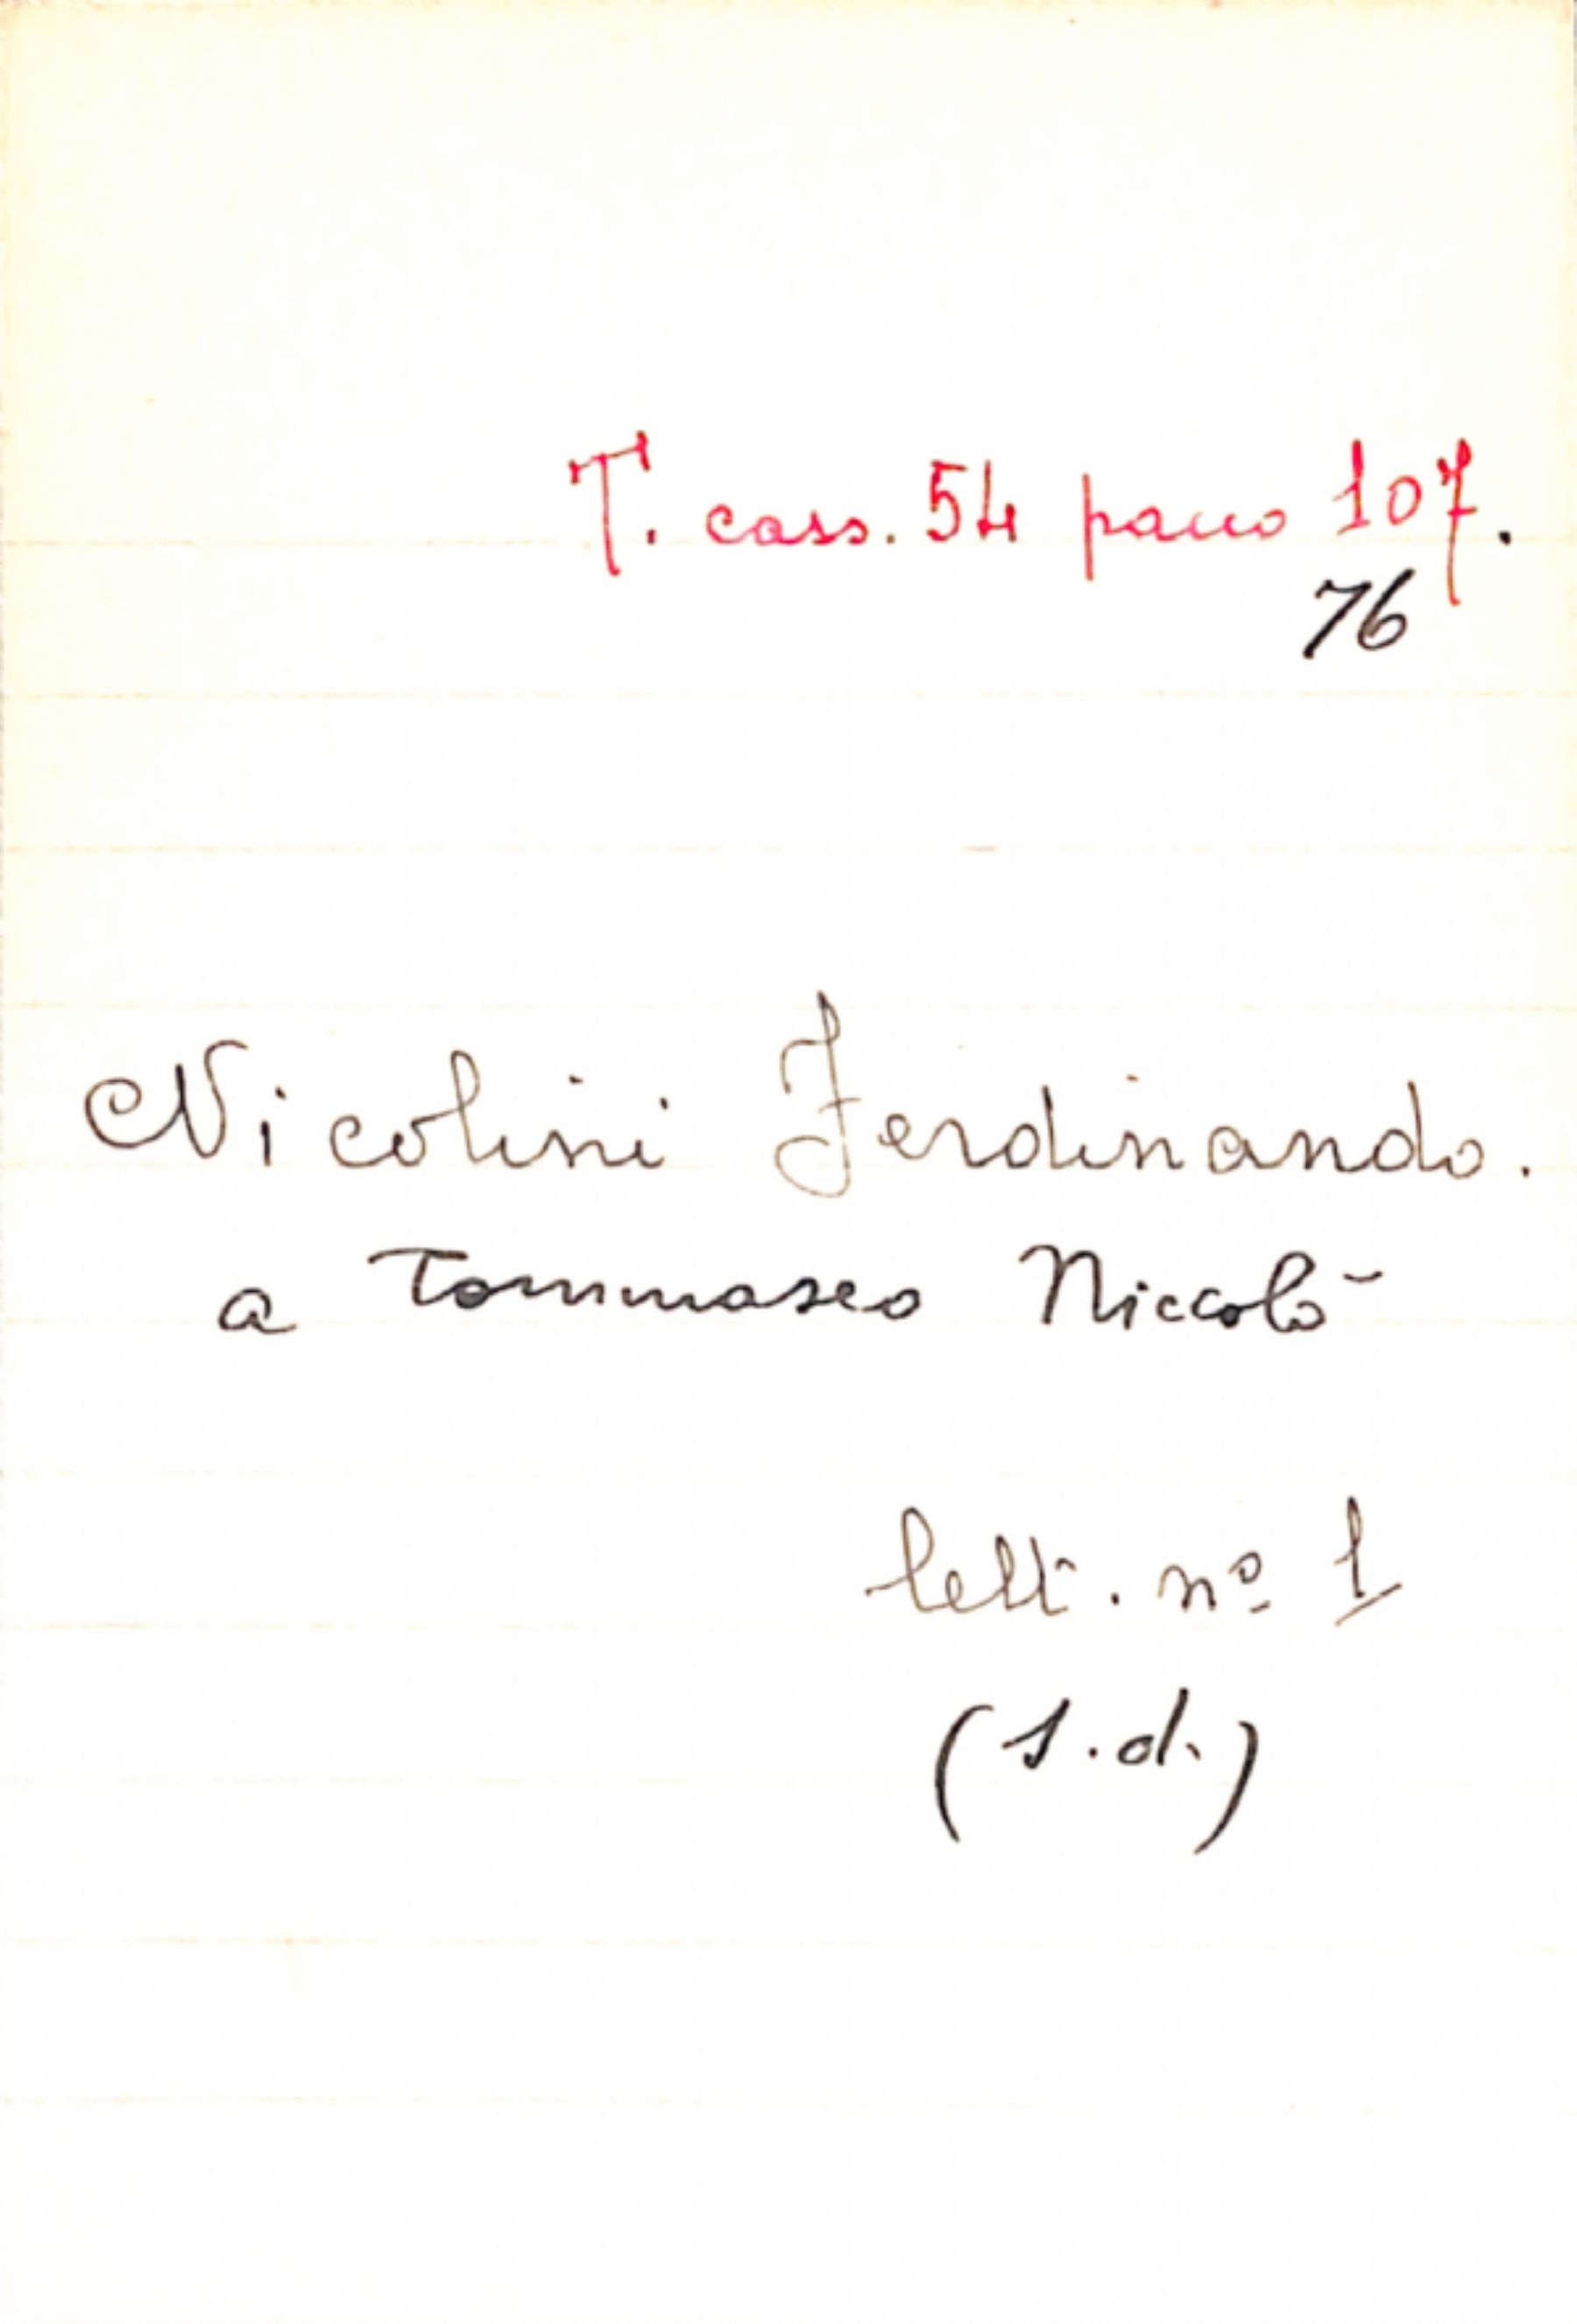 T. cass. 54 pacco 107.
76
Nicolini Ferdinando.
a Tommaseo Niccolò
lett. nº 1
(s.d.)